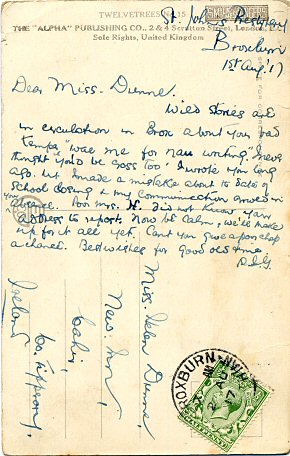 TWELVETREES
THE "ALPHA" PUBLISHING CO., 2 & 4 Scrutton Street, London, E.C.
Sole Rights, United Kingdom
St. John's Presbytery
Broxburn
1st Aug '17
Dear Miss Dunne.
Wild stories are
in circulation in Brox about your bad
temper "wae me for nau writing." I never
thought you'd be cross too I wrote you long
ago. but I made a mistake about to date of
School closing & my Communication arrived in
your absence. Poor Mrs. H. did not know your
address to report. Now be calm, we'll make
up for it all yet. Can't you give a poor chap
a chance. Best wishes for good old time
Miss Helen Dunne,
New Inn,
Cahir,
Co. Tipperary,
Ireland
BROXBURN